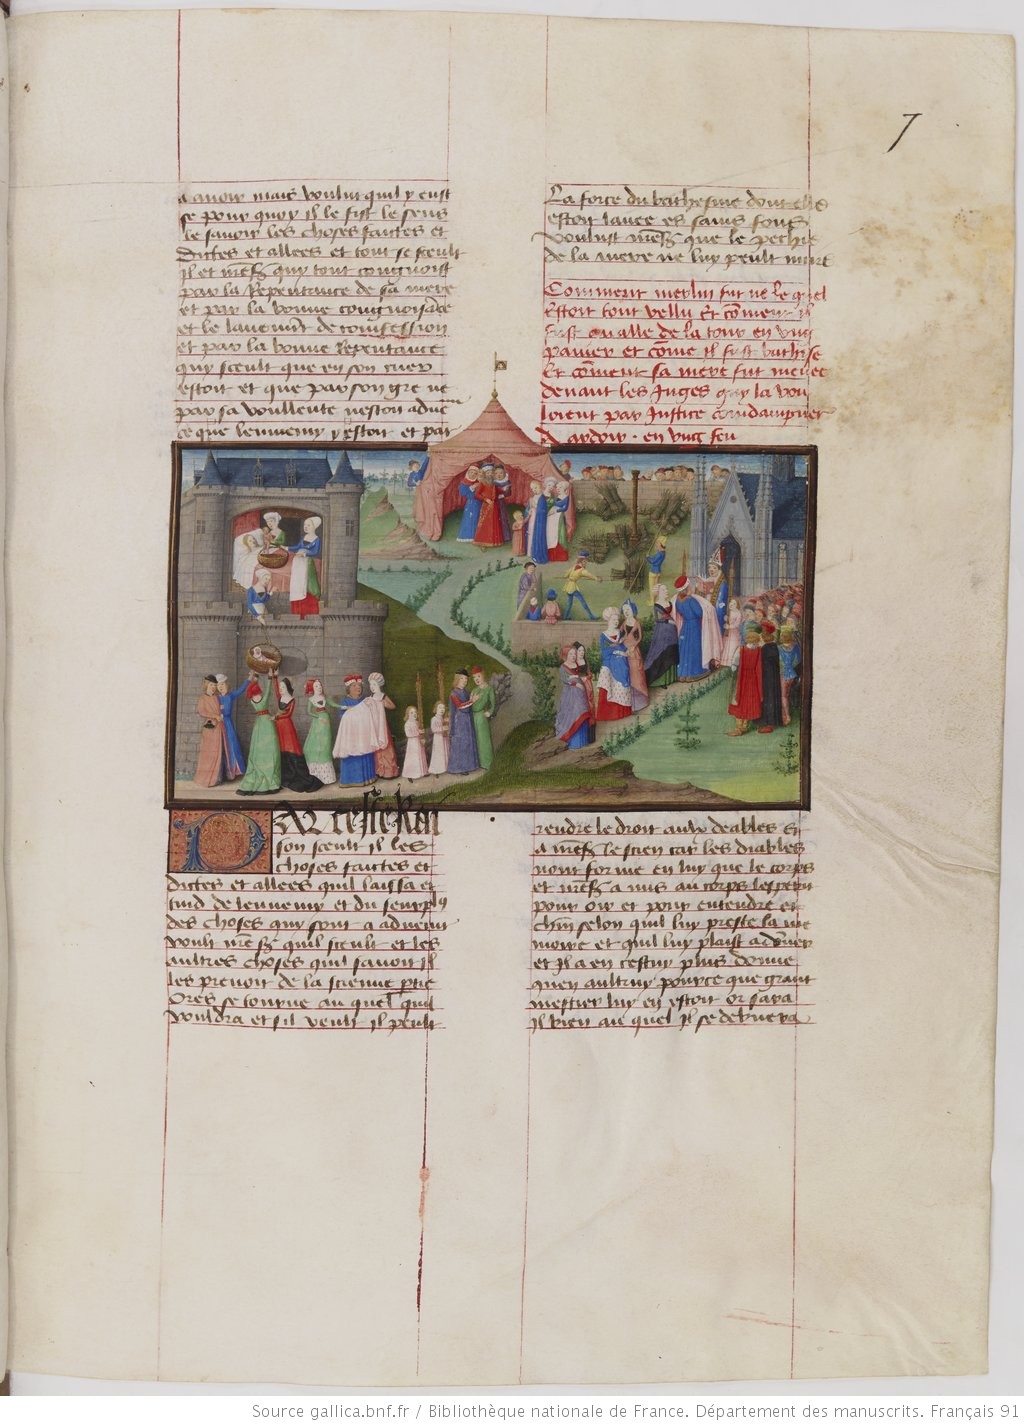 7
a avoir mais voulut quil y eust
se pour quoy il le fist le sens
de savoir les choses faictes et
dictes et allees et tout se sceult
Il et nr̃eſ quy tout congnoist
par la Repentance de sa mere
et par la bonne congnoisãce
et le lavemẽt de confession
et par la bonne Repentance
quy sceult que en son cuer
estoit et que par son gre ne
par sa voullente nestoit aduc
ce que lennemy y estoit et par
La force du bathesme dont elle
estoit lavee es sains fons
voulust que le pechie
de la mere ne luy peult nuire
Comment merlin fut ne le quel
estoit tout vellu Et cõment il
fust au alle de la tour en vng
panier et cõme il fust bathise
Et cõment sa mere fut menee
devant les Juges quy la vou
loient par Justice condampner
A ardoir . en vng feu
PAR ceste Rai
son sceult il les
choses faictes et
dictes et allees quil laissa et
tind de lennemy et du seurplꝰ
des choses quy sont a advenir
voult quil sceult et les
aultres choses quil savoit il
les prenoit de la science ꝑtie
Ores se tourne au quel quil
vouldra et sil veult il peult
rendre le droit aulx deables Et
a le sien car les diables
nont forme en luy que le corps
et a mis au corps lesperit
pour oir et pour entendre et
chũ selon quil luy preste la me
moire et quil luy plaist a dõner
et Il a en cestuy plus donne
quen aultruy pource que grant
mestier luy en estoit or sara
Il bien au quel Il se debuera
Source gallica.bnf.fr / Bibliothèque nationale de France. Département des manuscrits. Français 91